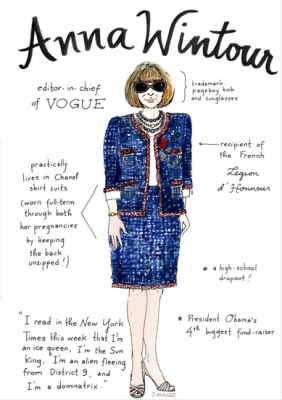 Anna Wintour
editor-in-chief
of VOGUE
trademark
pageboy bob
and sunglasses
recipient of
the French
Legion
d'Honneur
practically
lives in Chanel
skirt suits
(worn full-term
through both
her pregnancies
by keeping
the back
unzipped!)
* a high-school
dropout!
* President Obama's
4th biggest fund-raiser
"I read in the New York
Times this week that I'm
an ice queen, I'm the Sun
King, "I'm an alien fleeing
from District 9, and
I'm a dominatrix."
J.AVILLEZ